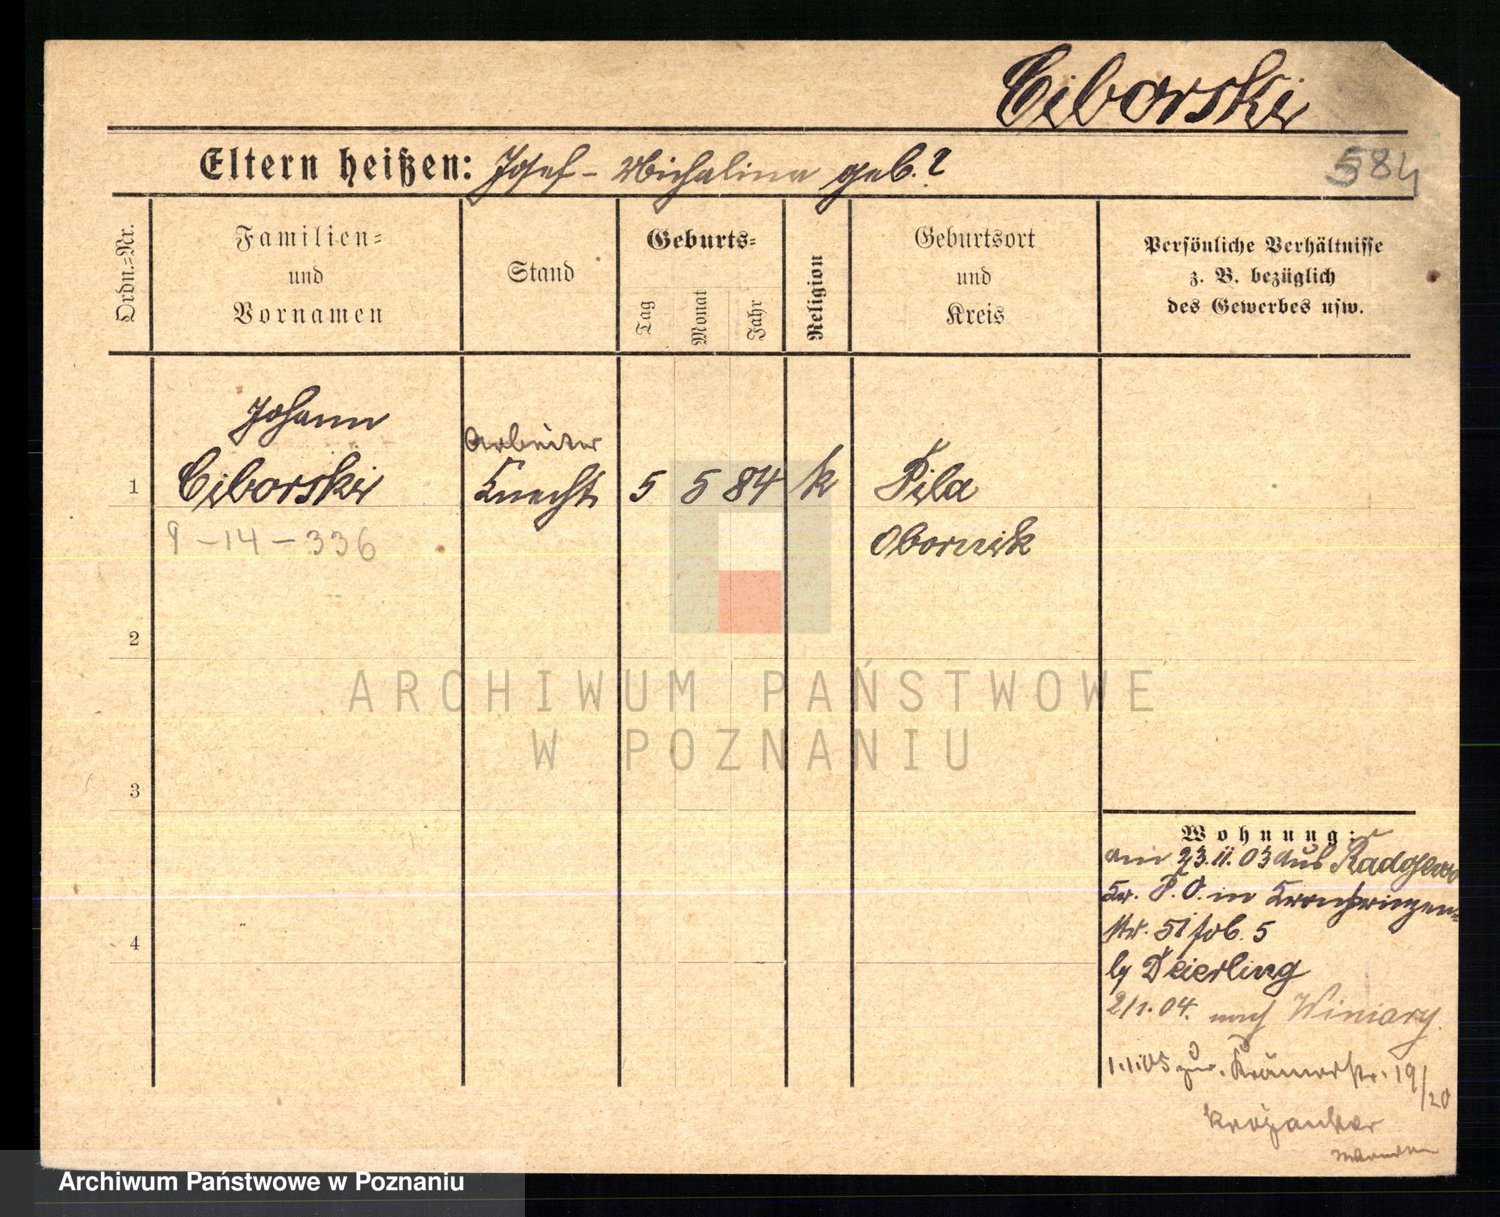 Ciborski
Eltern heißen: Josef - Michalina geb. ?
584
Ordn.-Nr.
Familien-
und
Vornamen
Stand
Geburts-
Tag
Monat
Jahr
Religion
Geburtsort
und
Kreis
Persönliche Verhältnisse
z. B. bezüglich
des Gewerbes usw.
Johann
Arbeiter
1 Ciborski Knecht 5 5 84 k Pila
9-14-336 Obornik
2
3
4
ARCHIWUM PAŃSTWOWE
W POZNANIU
Wohnung:
am 23.11.03 aus
Kr. P. O. in Kronprinzen-
str. 51 5
b/ Deierling
2/1.04. nach Winiary.
1.1.05 zur. Krämerstr. 19/20
Archiwum Państwowe w Poznaniu